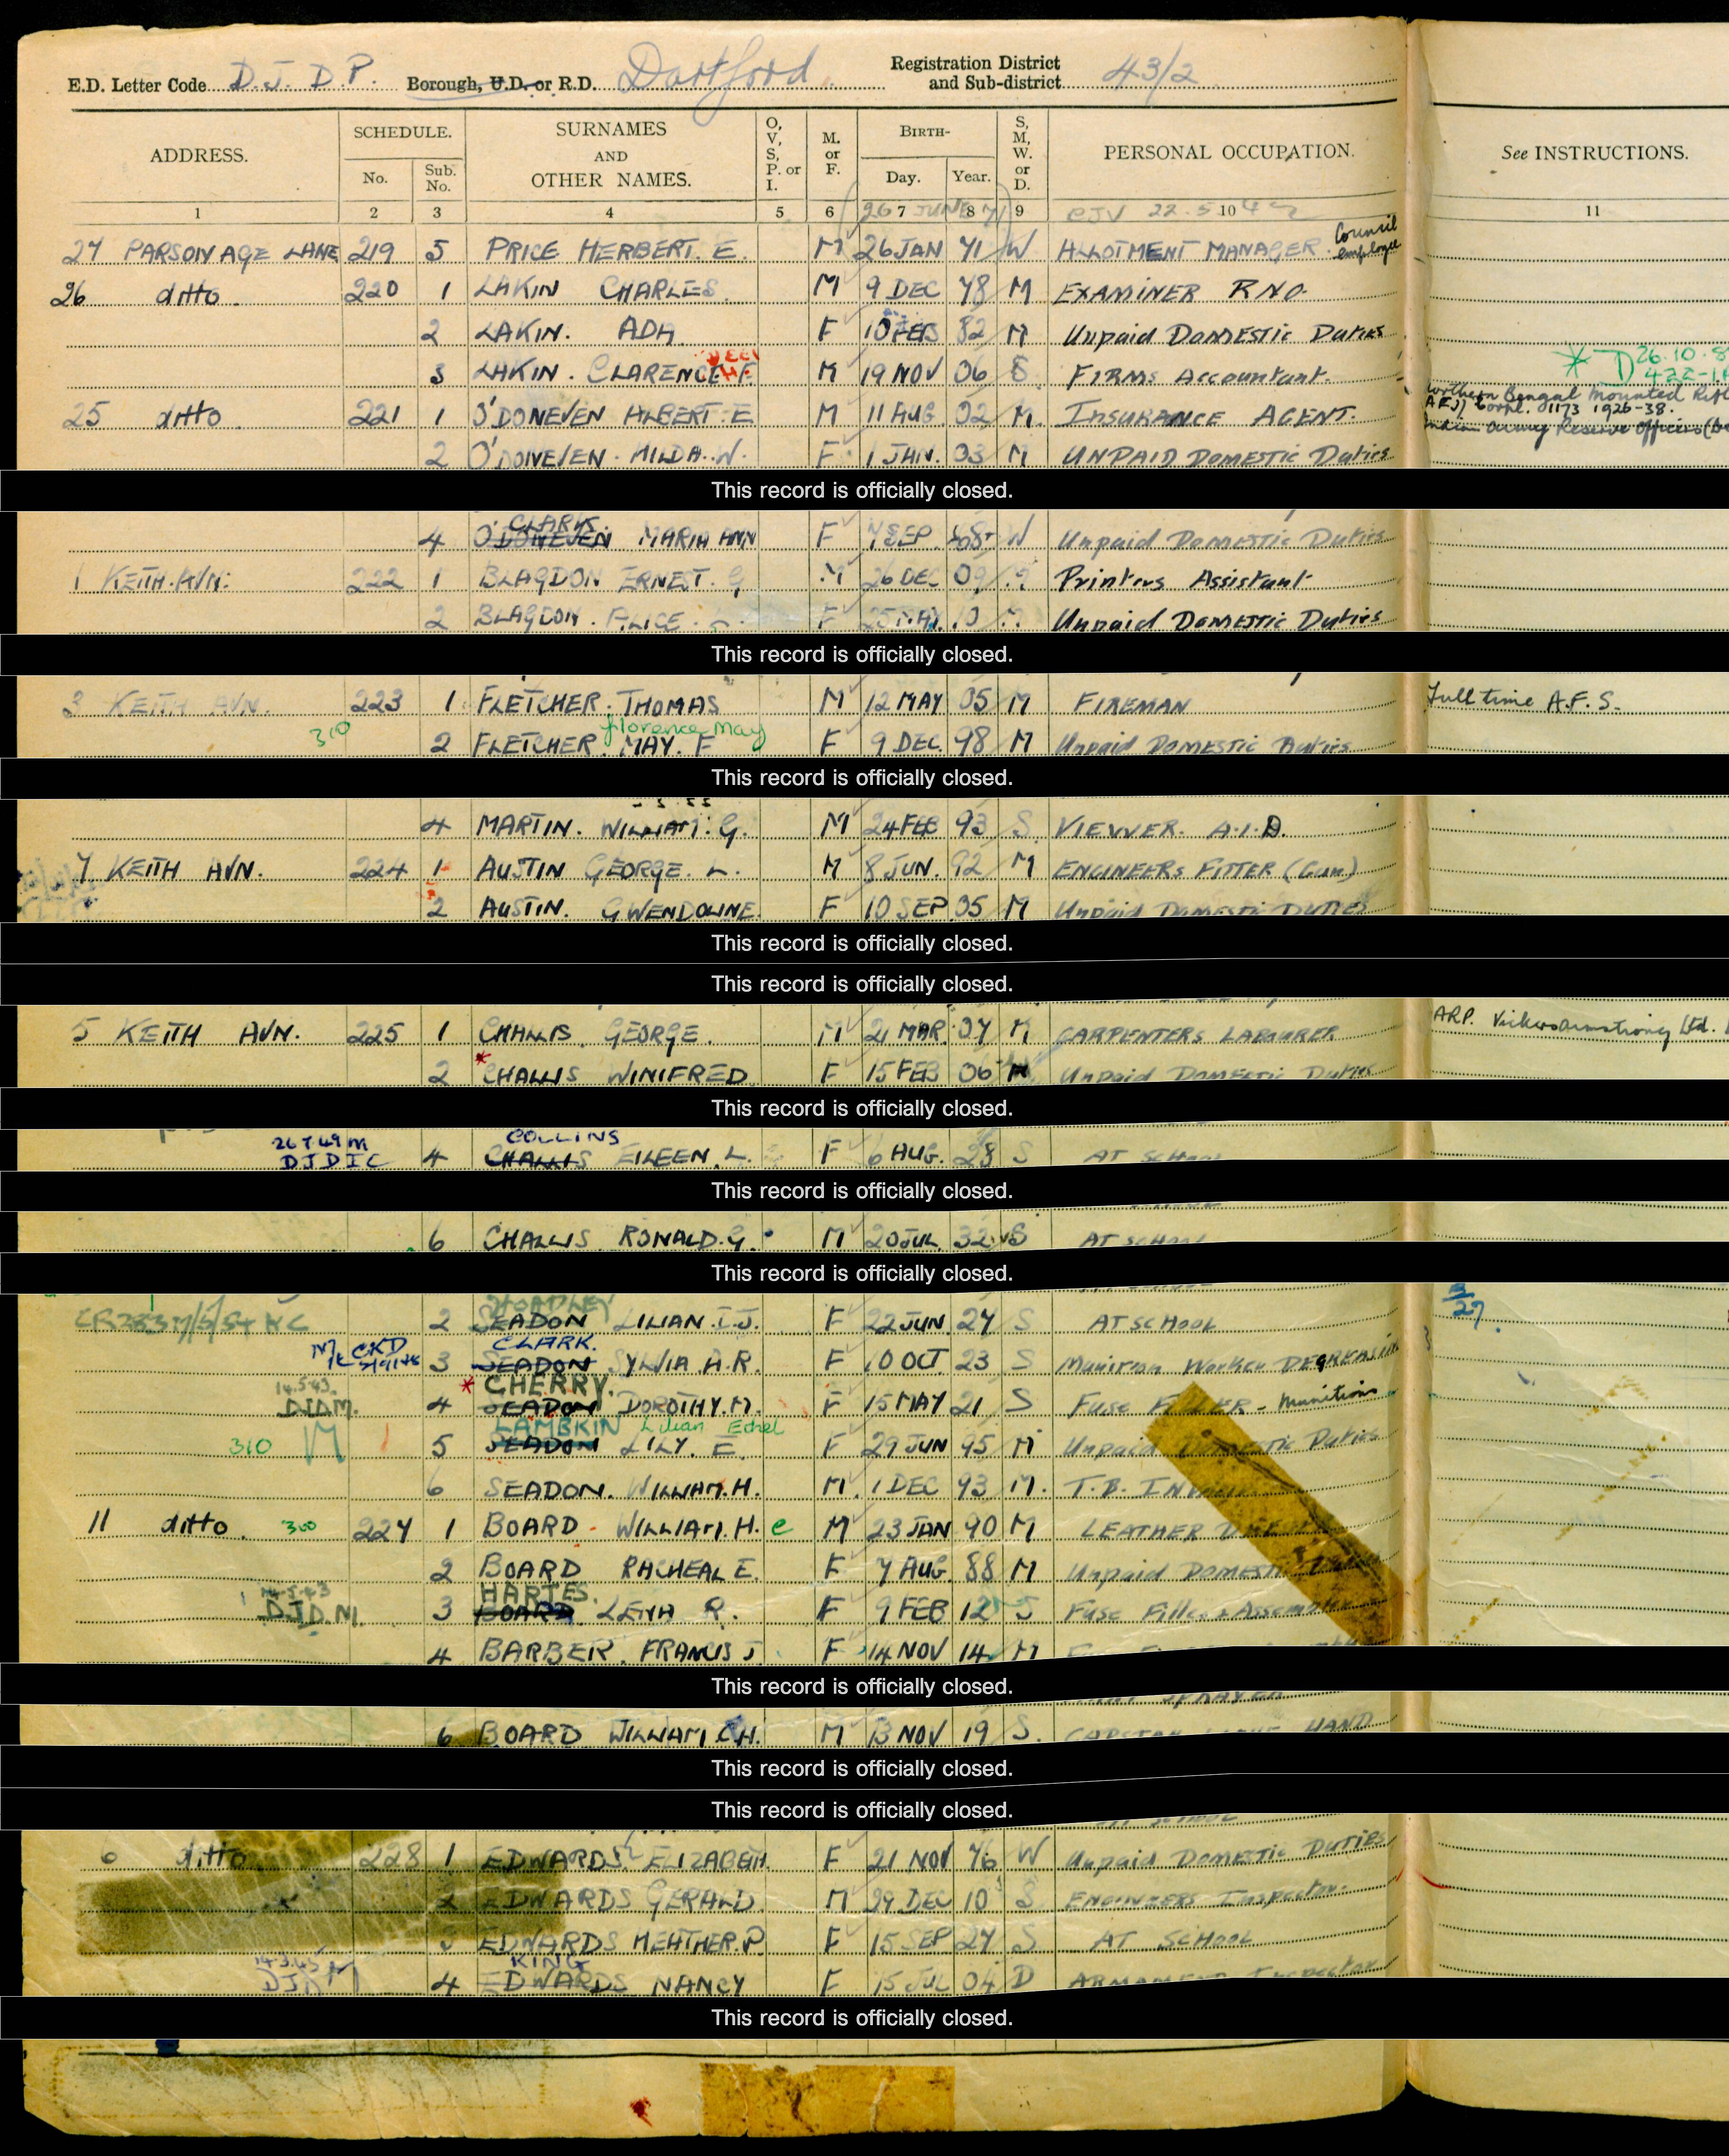 E.D. Letter Code D.J.D.P. Borough, U.D. or R.D. Dartford Registration District and Sub-district 43/2
ADDRESS. SCHEDULE. No. Sub. No. SURNAMES AND OTHER NAMES. O, V, S, P. or I. M. or F. BIRTH- Day. Year. S, M, W. or D. PERSONAL OCCUPATION. See INSTRUCTIONS.
1 2 3 4 5 6 7 8 9 10 11
26 JUNE 71
27 PARSONAGE LANE 219 5 PRICE HERBERT. E. M 26 JAN 71 W ALLOTMENT MANAGER. Council employee
26 ditto 220 1 LAKIN CHARLES M 9 DEC 78 M EXAMINER RNO
2 LAKIN. ADA F 10 FEB 82 M Unpaid Domestic Duties
3 LAKIN. CLARENCE F. M 19 NOV 06 S FIRMS Accountant.
D 26.10.8
25 ditto 221 1 O'DONEVEN ALBERT. E M 11 AUG 02 M. INSURANCE AGENT. Northern Bengal Mounted Rifl
(A F I) Corpl. 1173 1926-38.
Indian Army Reserve Officers
2 O'DONEVEN. HILDA. W. F 1 JAN. 03 M UNPAID DOMESTIC Duties
This record is officially closed.
CLARK.
4 O'DONEVEN MARIA ANN F 7 SEP 68 W Unpaid Domestic Duties
1 KEITH. AVN. 222 1 BLAGDON ERNEST. G M 26 DEC 09 M Printers Assistant
2 BLAGDON. ALICE. F 25 MAY 10 M Unpaid Domestic Duties
This record is officially closed.
3 KEITH AVN. 223 1 FLETCHER. THOMAS M 12 MAY 05 M FIREMAN Full time A.F.S.
310 Florence May
2 FLETCHER. MAY. F F 9 DEC. 98 M Unpaid Domestic Duties
This record is officially closed.
4 MARTIN. WILLIAM. G. M 24 FEB 93 S VIEWER. A.I.D.
7 KEITH AVN. 224 1 AUSTIN GEORGE. L. M 8 JUN. 92 M ENGINEERS FITTER (Gun)
2 AUSTIN. GWENDOLINE. F 10 SEP 05 M Unpaid Domestic Duties
This record is officially closed.
This record is officially closed.
5 KEITH AVN. 225 1 CHALLIS GEORGE. M 21 MAR. 07 M CARPENTERS LABOURER ARP. Vickers Armstrong Ltd.
2 CHALLIS WINIFRED F 15 FEB 06 M Unpaid Domestic Duties
This record is officially closed.
26 7.49 M COLLINS
DJDIC 4 CHALLIS EILEEN. L. F 6 AUG. 28 S AT SCHOOL
This record is officially closed.
6 CHALLIS RONALD. G. M 20 JUL 32 S AT SCHOOL
This record is officially closed.
HOADLEY
2 SEADON LILIAN. I.J. F 22 JUN 24 S AT SCHOOL
CLARK.
CKD 3 SEADON SYLVIA. A.R. F 10 OCT 23 S Munition Worker DEGREASING
14.5.43. * CHERRY.
DJDM. 4 SEADON DOROTHY. M. F 15 MAY 21 S Fuse Filler - Munitions
LAMBKIN Lilian Ethel
310 M 5 SEADON LILY. E. F 29 JUN 95 M Unpaid Domestic Duties
6 SEADON. WILLIAM. H. M. 1 DEC 93 M. T.B. INVALID
11 ditto. 300 227 1 BOARD - WILLIAM. H. e M 23 JAN 90 M LEATHER
2 BOARD RACHEAL E. F 7 AUG. 88 M Unpaid Domestic
14.5.43 HARTES.
DJD.M. 3 BOARD LEAH R. F 9 FEB 12 S Fuse Filler & Assembler
4 BARBER. FRANCIS J. F 14 NOV 14 M
This record is officially closed.
SPRAYER
6 BOARD WILLIAM C.H. M 13 NOV 19 S. CAPSTAN HAND
This record is officially closed.
This record is officially closed.
6 ditto 228 1 EDWARDS ELIZABETH. F 21 NOV 76 W Unpaid Domestic Duties
2 EDWARDS GERALD M 29 DEC 10 S ENGINEERS Inspector.
3 EDWARDS HEATHER. P. F 15 SEP 27 S AT SCHOOL
14.3.45 KING
DJDM 4 EDWARDS NANCY F 15 JUL 04 D ARMAMENT Inspector
This record is officially closed.